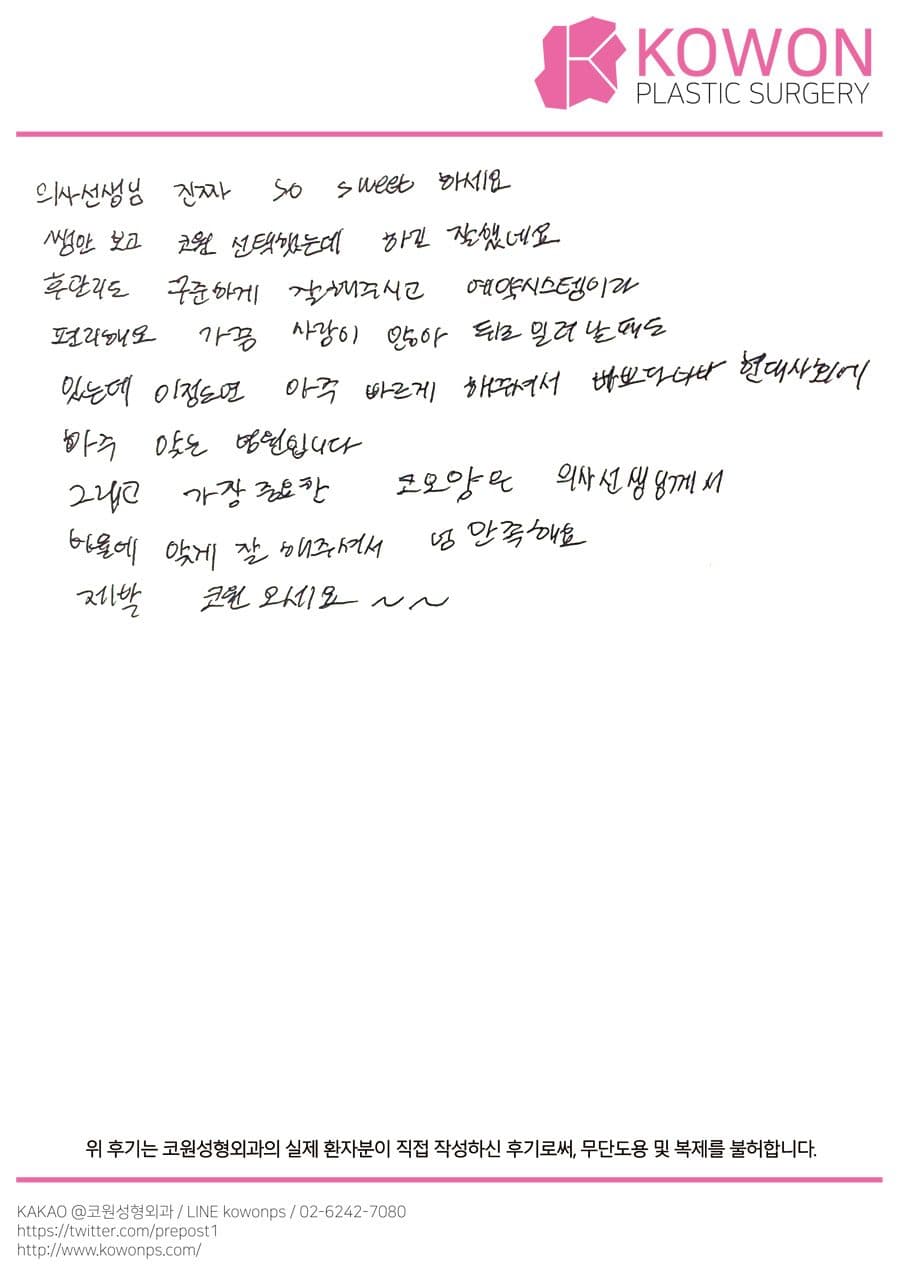 KOWON
PLASTIC SURGERY
의사선생님 진짜 so sweet 하세요
쌤만 보고 코원 선택했는데 하길 잘했네요
후관리도 꾸준하게 잘해주시고 예약시스템이라
편리해요 가끔 사람이 많아 뒤로 밀려 날때도
있는데 이정도면 아주 빠르게 해주셔서 현대사회에
아주 맞는 병원입니다
그리고 가장 중요한 코모양도 의사선생님께서
비율에 맞게 잘 해주셔서 넘 만족해요
제발 코원 오세요 ~~
위 후기는 코원성형외과의 실제 환자분이 직접 작성하신 후기로써, 무단도용 및 복제를 불허합니다.
KAKAO @코원성형외과 / LINE kowonps / 02-6242-7080
https://twitter.com/prepost1
http://www.kowonps.com/